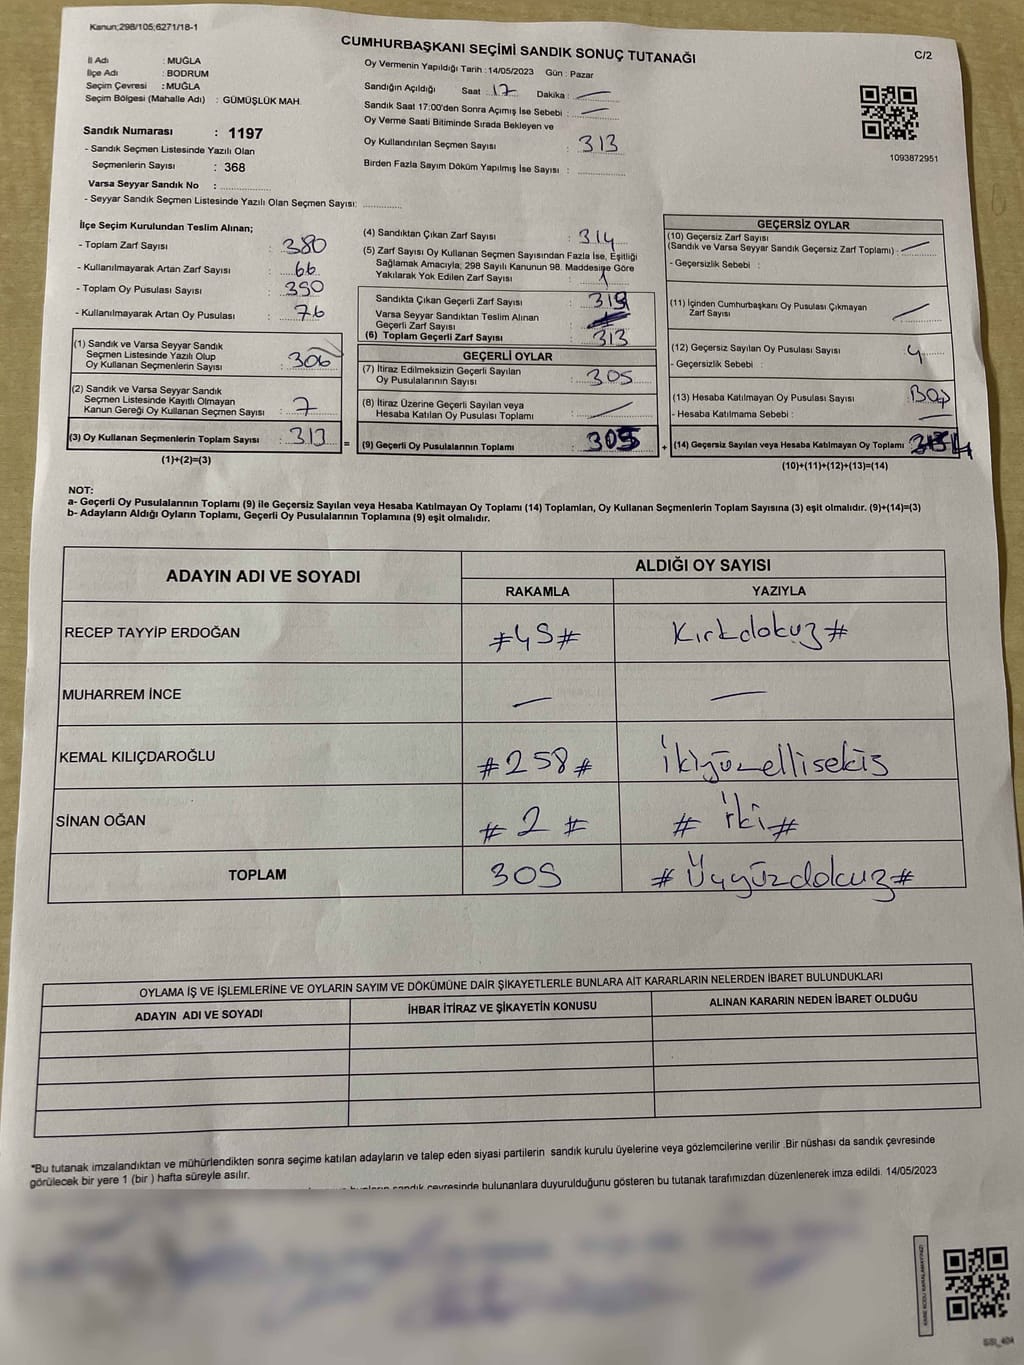 Kanun;298/105;6271/18-1
CUMHURBAŞKANI SEÇİMİ SANDIK SONUÇ TUTANAĞI
C/2
İl Adı : MUĞLA
İlçe Adı : BODRUM
Seçim Çevresi : MUĞLA
Seçim Bölgesi (Mahalle Adı) : GÜMÜŞLÜK MAH.
Sandık Numarası : 1197
- Sandık Seçmen Listesinde Yazılı Olan
Seçmenlerin Sayısı : 368
Varsa Seyyar Sandık No :
- Seyyar Sandık Seçmen Listesinde Yazılı Olan Seçmen Sayısı:
Oy Vermenin Yapıldığı Tarih : 14/05/2023 Gün : Pazar
Sandığın Açıldığı Saat : 17 Dakika : —
Sandık Saat 17:00'den Sonra Açımış İse Sebebi : —
Oy Verme Saati Bitiminde Sırada Bekleyen ve
Oy Kullandırılan Seçmen Sayısı : 313
Birden Fazla Sayım Döküm Yapılmış İse Sayısı :
1093872951
İlçe Seçim Kurulundan Teslim Alınan;
- Toplam Zarf Sayısı : 380
- Kullanılmayarak Artan Zarf Sayısı : 66
- Toplam Oy Pusulası Sayısı :
- Kullanılmayarak Artan Oy Pusulası : 76
(1) Sandık ve Varsa Seyyar Sandık
Seçmen Listesinde Yazılı Olup
Oy Kullanan Seçmenlerin Sayısı : 306
(2) Sandık ve Varsa Seyyar Sandık
Seçmen Listesinde Kayıtlı Olmayan
Kanun Gereği Oy Kullanan Seçmen Sayısı : 7
(3) Oy Kullanan Seçmenlerin Toplam Sayısı : 313
(1)+(2)=(3)
(4) Sandıktan Çıkan Zarf Sayısı : 314
(5) Zarf Sayısı Oy Kullanan Seçmen Sayısından Fazla İse, Eşitliği
Sağlamak Amacıyla; 298 Sayılı Kanunun 98. Maddesine Göre
Yakılarak Yok Edilen Zarf Sayısı : 1
Sandıkta Çıkan Geçerli Zarf Sayısı :
Varsa Seyyar Sandıktan Teslim Alınan
Geçerli Zarf Sayısı :
(6) Toplam Geçerli Zarf Sayısı : 313
=
GEÇERLİ OYLAR
(7) İtiraz Edilmeksizin Geçerli Sayılan
Oy Pusulalarının Sayısı : 309
(8) İtiraz Üzerine Geçerli Sayılan veya
Hesaba Katılan Oy Pusulası Toplamı : —
(9) Geçerli Oy Pusulalarının Toplamı : 309
+
GEÇERSİZ OYLAR
(10) Geçersiz Zarf Sayısı
(Sandık ve Varsa Seyyar Sandık Geçersiz Zarf Toplamı) : —
- Geçersizlik Sebebi :
(11) İçinden Cumhurbaşkanı Oy Pusulası Çıkmayan
Zarf Sayısı : —
(12) Geçersiz Sayılan Oy Pusulası Sayısı : 4
- Geçersizlik Sebebi :
(13) Hesaba Katılmayan Oy Pusulası Sayısı :
- Hesaba Katılmama Sebebi : —
(14) Geçersiz Sayılan veya Hesaba Katılmayan Oy Toplamı :
(10)+(11)+(12)+(13)=(14)
NOT:
a- Geçerli Oy Pusulalarının Toplamı (9) ile Geçersiz Sayılan veya Hesaba Katılmayan Oy Toplamı (14) Toplamları, Oy Kullanan Seçmenlerin Toplam Sayısına (3) eşit olmalıdır. (9)+(14)=(3)
b- Adayların Aldığı Oyların Toplamı, Geçerli Oy Pusulalarının Toplamına (9) eşit olmalıdır.
ADAYIN ADI VE SOYADI ALDIĞI OY SAYISI
RAKAMLA YAZIYLA
RECEP TAYYİP ERDOĞAN #49# Kırkdokuz#
MUHARREM İNCE — —
KEMAL KILIÇDAROĞLU #258# İkiyüzellisekiz
SİNAN OĞAN # 2 # # İki #
TOPLAM 309 # Üçyüzdokuz#
OYLAMA İŞ VE İŞLEMLERİNE VE OYLARIN SAYIM VE DÖKÜMÜNE DAİR ŞİKAYETLERLE BUNLARA AİT KARARLARIN NELERDEN İBARET BULUNDUKLARI
ADAYIN ADI VE SOYADI İHBAR İTİRAZ VE ŞİKAYETİN KONUSU ALINAN KARARIN NEDEN İBARET OLDUĞU
*Bu tutanak imzalandıktan ve mühürlendikten sonra seçime katılan adayların ve talep eden siyasi partilerin sandık kurulu üyelerine veya gözlemcilerine verilir .Bir nüshası da sandık çevresinde
görülecek bir yere 1 (bir ) hafta süreyle asılır.
sandık çevresinde bulunanlara duyurulduğunu gösteren bu tutanak tarafımızdan düzenlenerek imza edildi. 14/05/2023